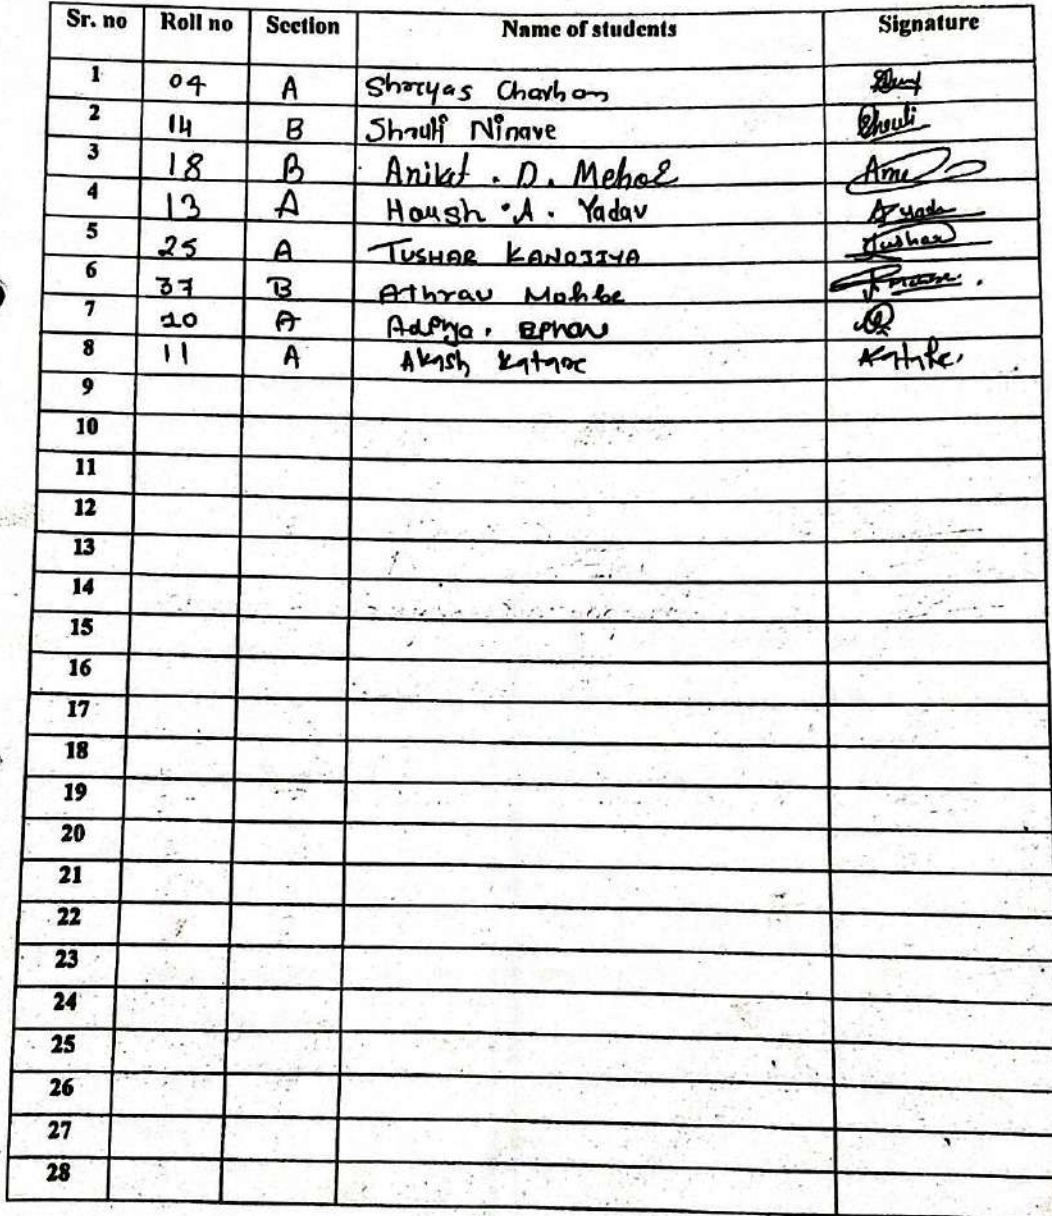 Sr. no Roll no Section Name of students Signature
1 04 A Shreyas Chavhan
2 14 B Shruti Ninave Shruti
3 18 B Aniket . D. Mehol
4 13 A Harsh . A. Yadav A Yadav
5 25 A TUSHAR KANOJIYA Tushar
6 37 B Athrav Mohbe
7 20 A
8 11 A Akash
9
10
11
12
13
14
15
16
17
18
19
20
21
22
23
24
25
26
27
28